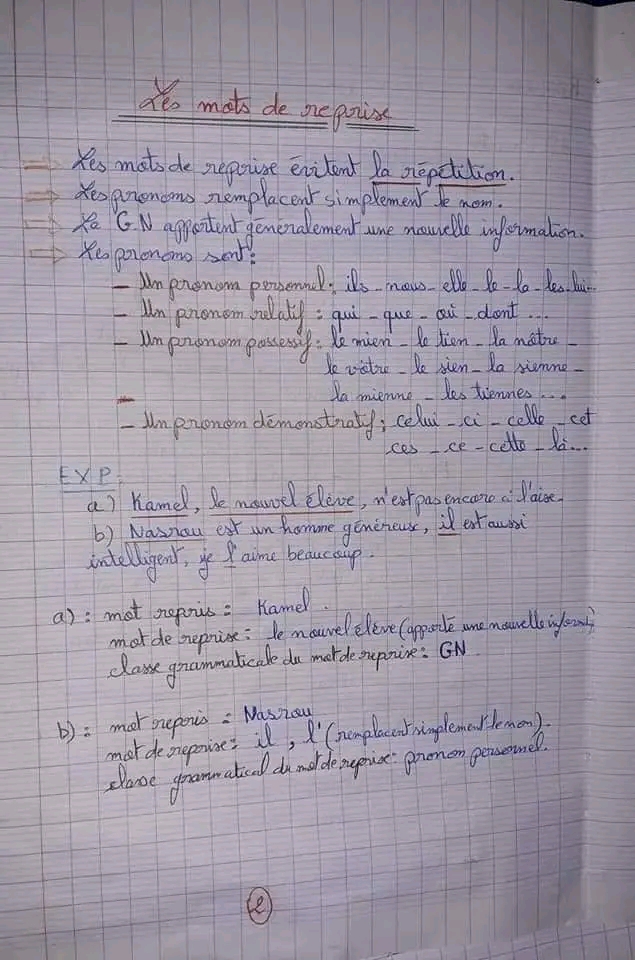 Les mots de reprise
Les mots de reprise évitent la répétition.
Les pronoms remplacent simplement le nom.
Le G.N apportent généralement une nouvelle information.
Les pronoms sont :
- Un pronom personnel : ils - nous - elle - le - la - les - lui...
- Un pronom relatif : qui - que - où - dont ...
- Un pronom possessif : le mien - le tien - la nôtre -
le vôtre - le sien - la sienne -
la mienne - les tiennes ...
- Un pronom démonstratif ; celui - ci - celle - cet
ces - ce - cette - là...
EXP :
a) Kamel, le nouvel élève, n'est pas encore à l'aise.
b) Nasrou est un homme généreux, il est aussi
intelligent, je l'aime beaucoup.
a) : mot repris : Kamel.
mot de reprise : le nouvel élève (apporte une nouvelle inform)
classe grammaticale du mot de reprise : GN.
b) : mot repris : Nasrou
mot de reprise : il, l' (remplacent simplement le nom).
classe grammatical du mot de reprise : pronom personnel.